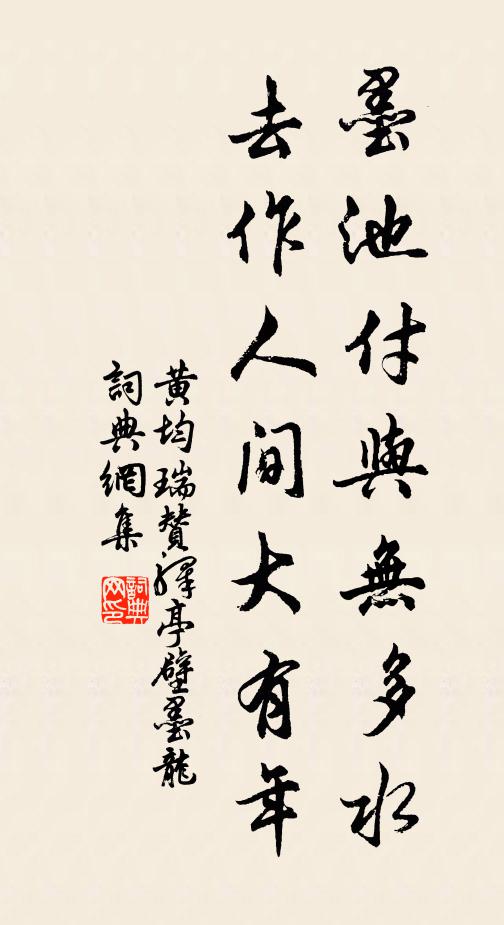 墨池付與無多水
去作人間大有年
黄均瑞贊驛亭壁墨龍
詞典網集
詞典網印